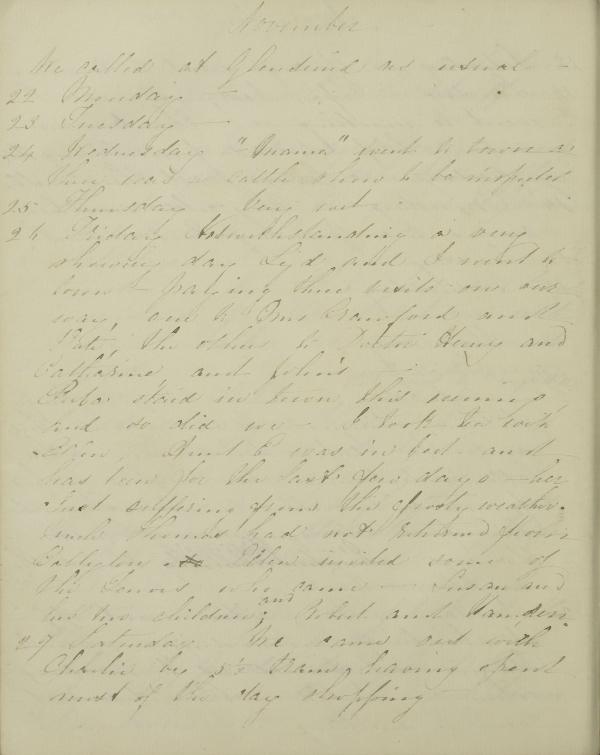 November
We called at Glenduind as usual —
22 Monday —
23 Tuesday —
24 Wednesday "Mama" went to town as
there was a cattle show to be inspected
25 Thursday — Very wet —
26 Friday Notwithstanding a very
showery day Liz and I went to
town — paying three visits on our
way, one to Mrs Crawford and
Kate, the other to Doctor Henry and
Catharine, and John's —
Papa staid in town this evening,
and so did we — I took tea with
Ellen, Aunt E was in bed — and
has been for the last few days — her
chest suffering from the frosty weather.
Uncle Thomas had not returned from
Ellen invited some of
the who came — Susan and
her two children; and Robert and
27 Saturday We came out with
Charlie by 5 o'c train, having spent
most of the day shopping —